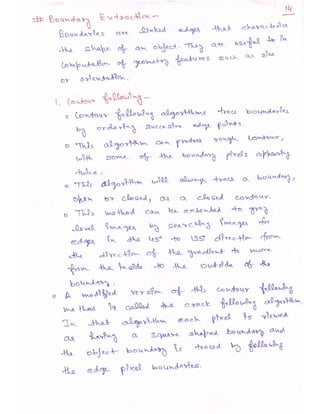 14
# Boundary Extraction -
Boundaries are linked edges that characterize
the shape of an object. They are useful in
computation of geometry features such as size
or orientation.
1. Contour following -
o Contour following algorithms trace boundaries
by ordering successive edge points.
o This algorithm can produce rough contour,
with some of the boundary pixels appearing
twice.
o This algorithm will always trace a boundary,
open or closed, as a closed contour.
o This method can be extended to gray
level images by searching images for
edges in the 45° to 135° direction from
the direction of the gradient to move
from the inside to the outside of the
boundary.
o A modified version of this contour following
method is called the crack following algorithm.
In that algorithm each pixel is viewed
as having a square shaped boundary and
the object boundary is traced by following
the edge pixel boundaries.